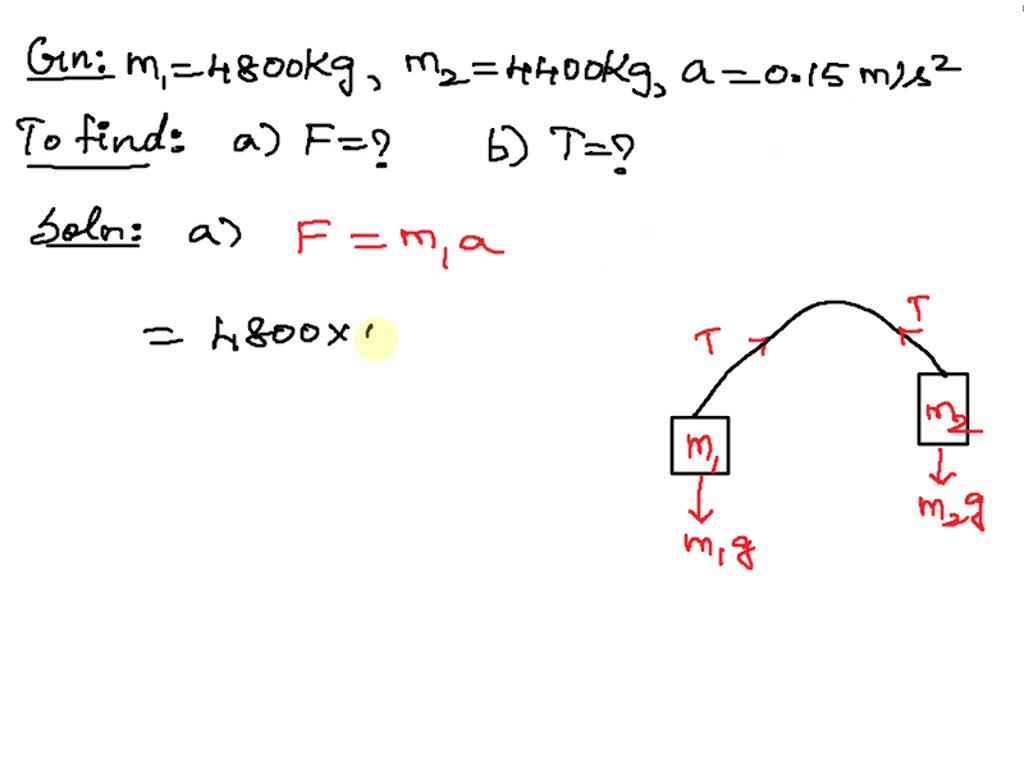 Gn: m₁=4800Kg, m₂=4400Kg, a=0.15m/s²
To find: a) F=? b) T=?
Soln: a) F=m₁a
= 4800×
T T
m₁ m₂
m₁g m₂g